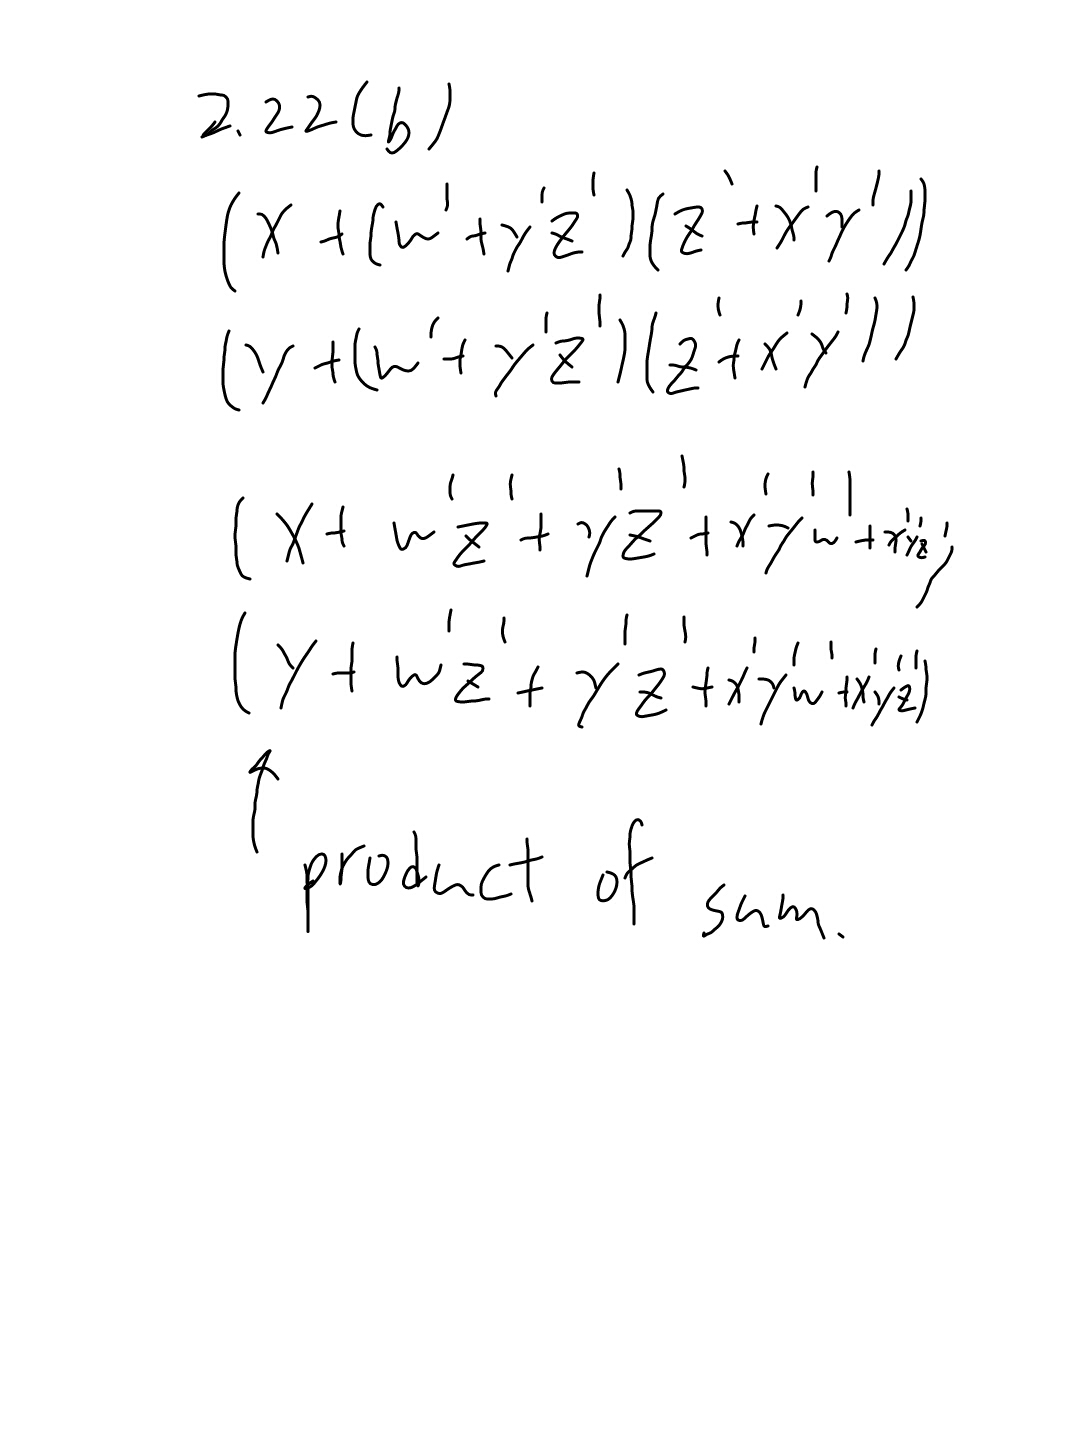 2.22(b)
(x + (w' + y'z')(z' + x'y'))
(y + (w' + y'z')(z' + x'y'))
(x + w'z' + y'z' + x'y'w' + x'y'z')
(y + w'z' + y'z' + x'y'w' + x'y'z')
↑
product of sum.